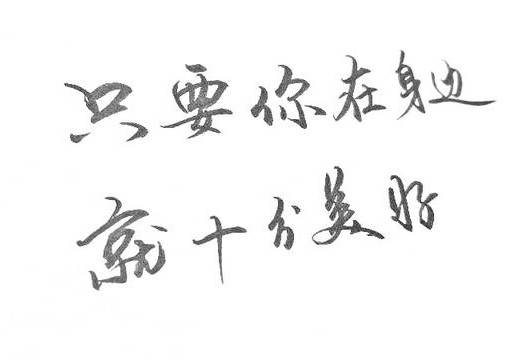 只要你在身边
就十分美好